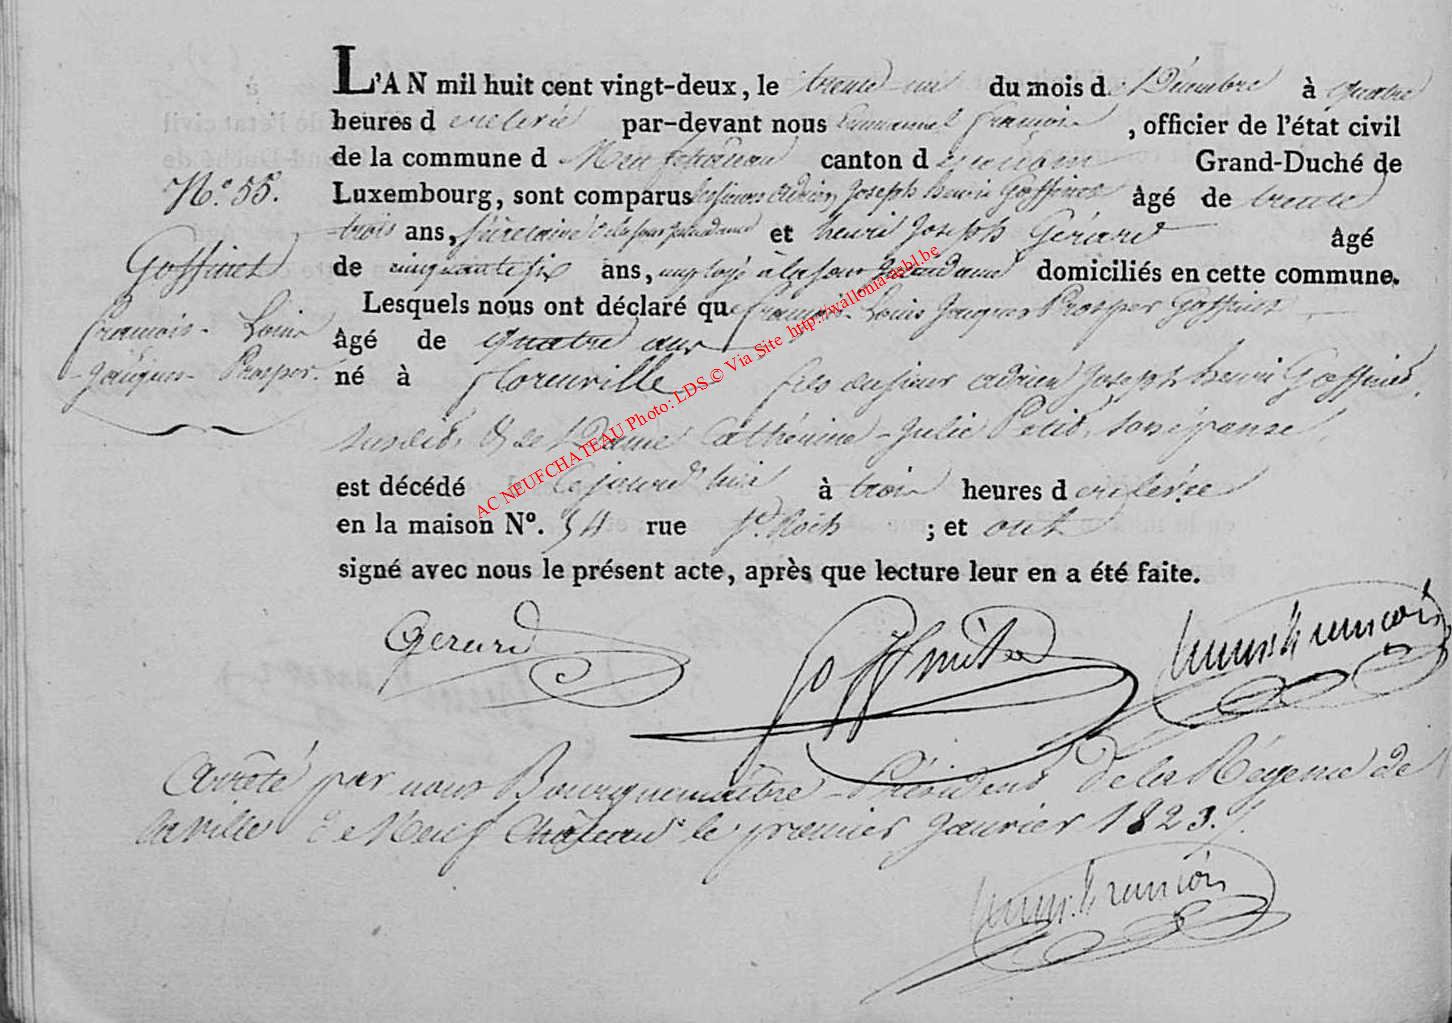 L'AN mil huit cent vingt-deux, le trente-un du mois de Décembre à quatre
heures de relevée par-devant nous Emmanuel François, officier de l'état civil
de la commune de Neufchâteau canton d Grand-Duché de
N.° 55. Luxembourg, sont comparus Adrien Joseph henri Goffinet âgé de trente
trois ans, et henri Joseph Gérard âgé
Goffinet
de cinquante six ans, employé à domiciliés en cette commune.
Lesquels nous ont déclaré que françois-Louis Jacques Prosper Goffinet
françois-Louis
âgé de quatre ans
Jacques-Prosper.
né à florenville fils du sieur Adrien Joseph henri Goffinet,
susdit, & de Dame Cathérine-Julie Petit, son épouse
est décédé Cejourd'hui à trois heures de relevée
en la maison N°. 54 rue St. Roch ; et ont
signé avec nous le présent acte, après que lecture leur en a été faite.
Gerard
Goffinet
françois
Arrêté par nous Bourguemaître-Président de la Régence de
la ville de Neufchâteau le premier Janvier 1823.
françois
AC NEUFCHATEAU Photo: LDS © Via Site http://wallonia-asbl.be